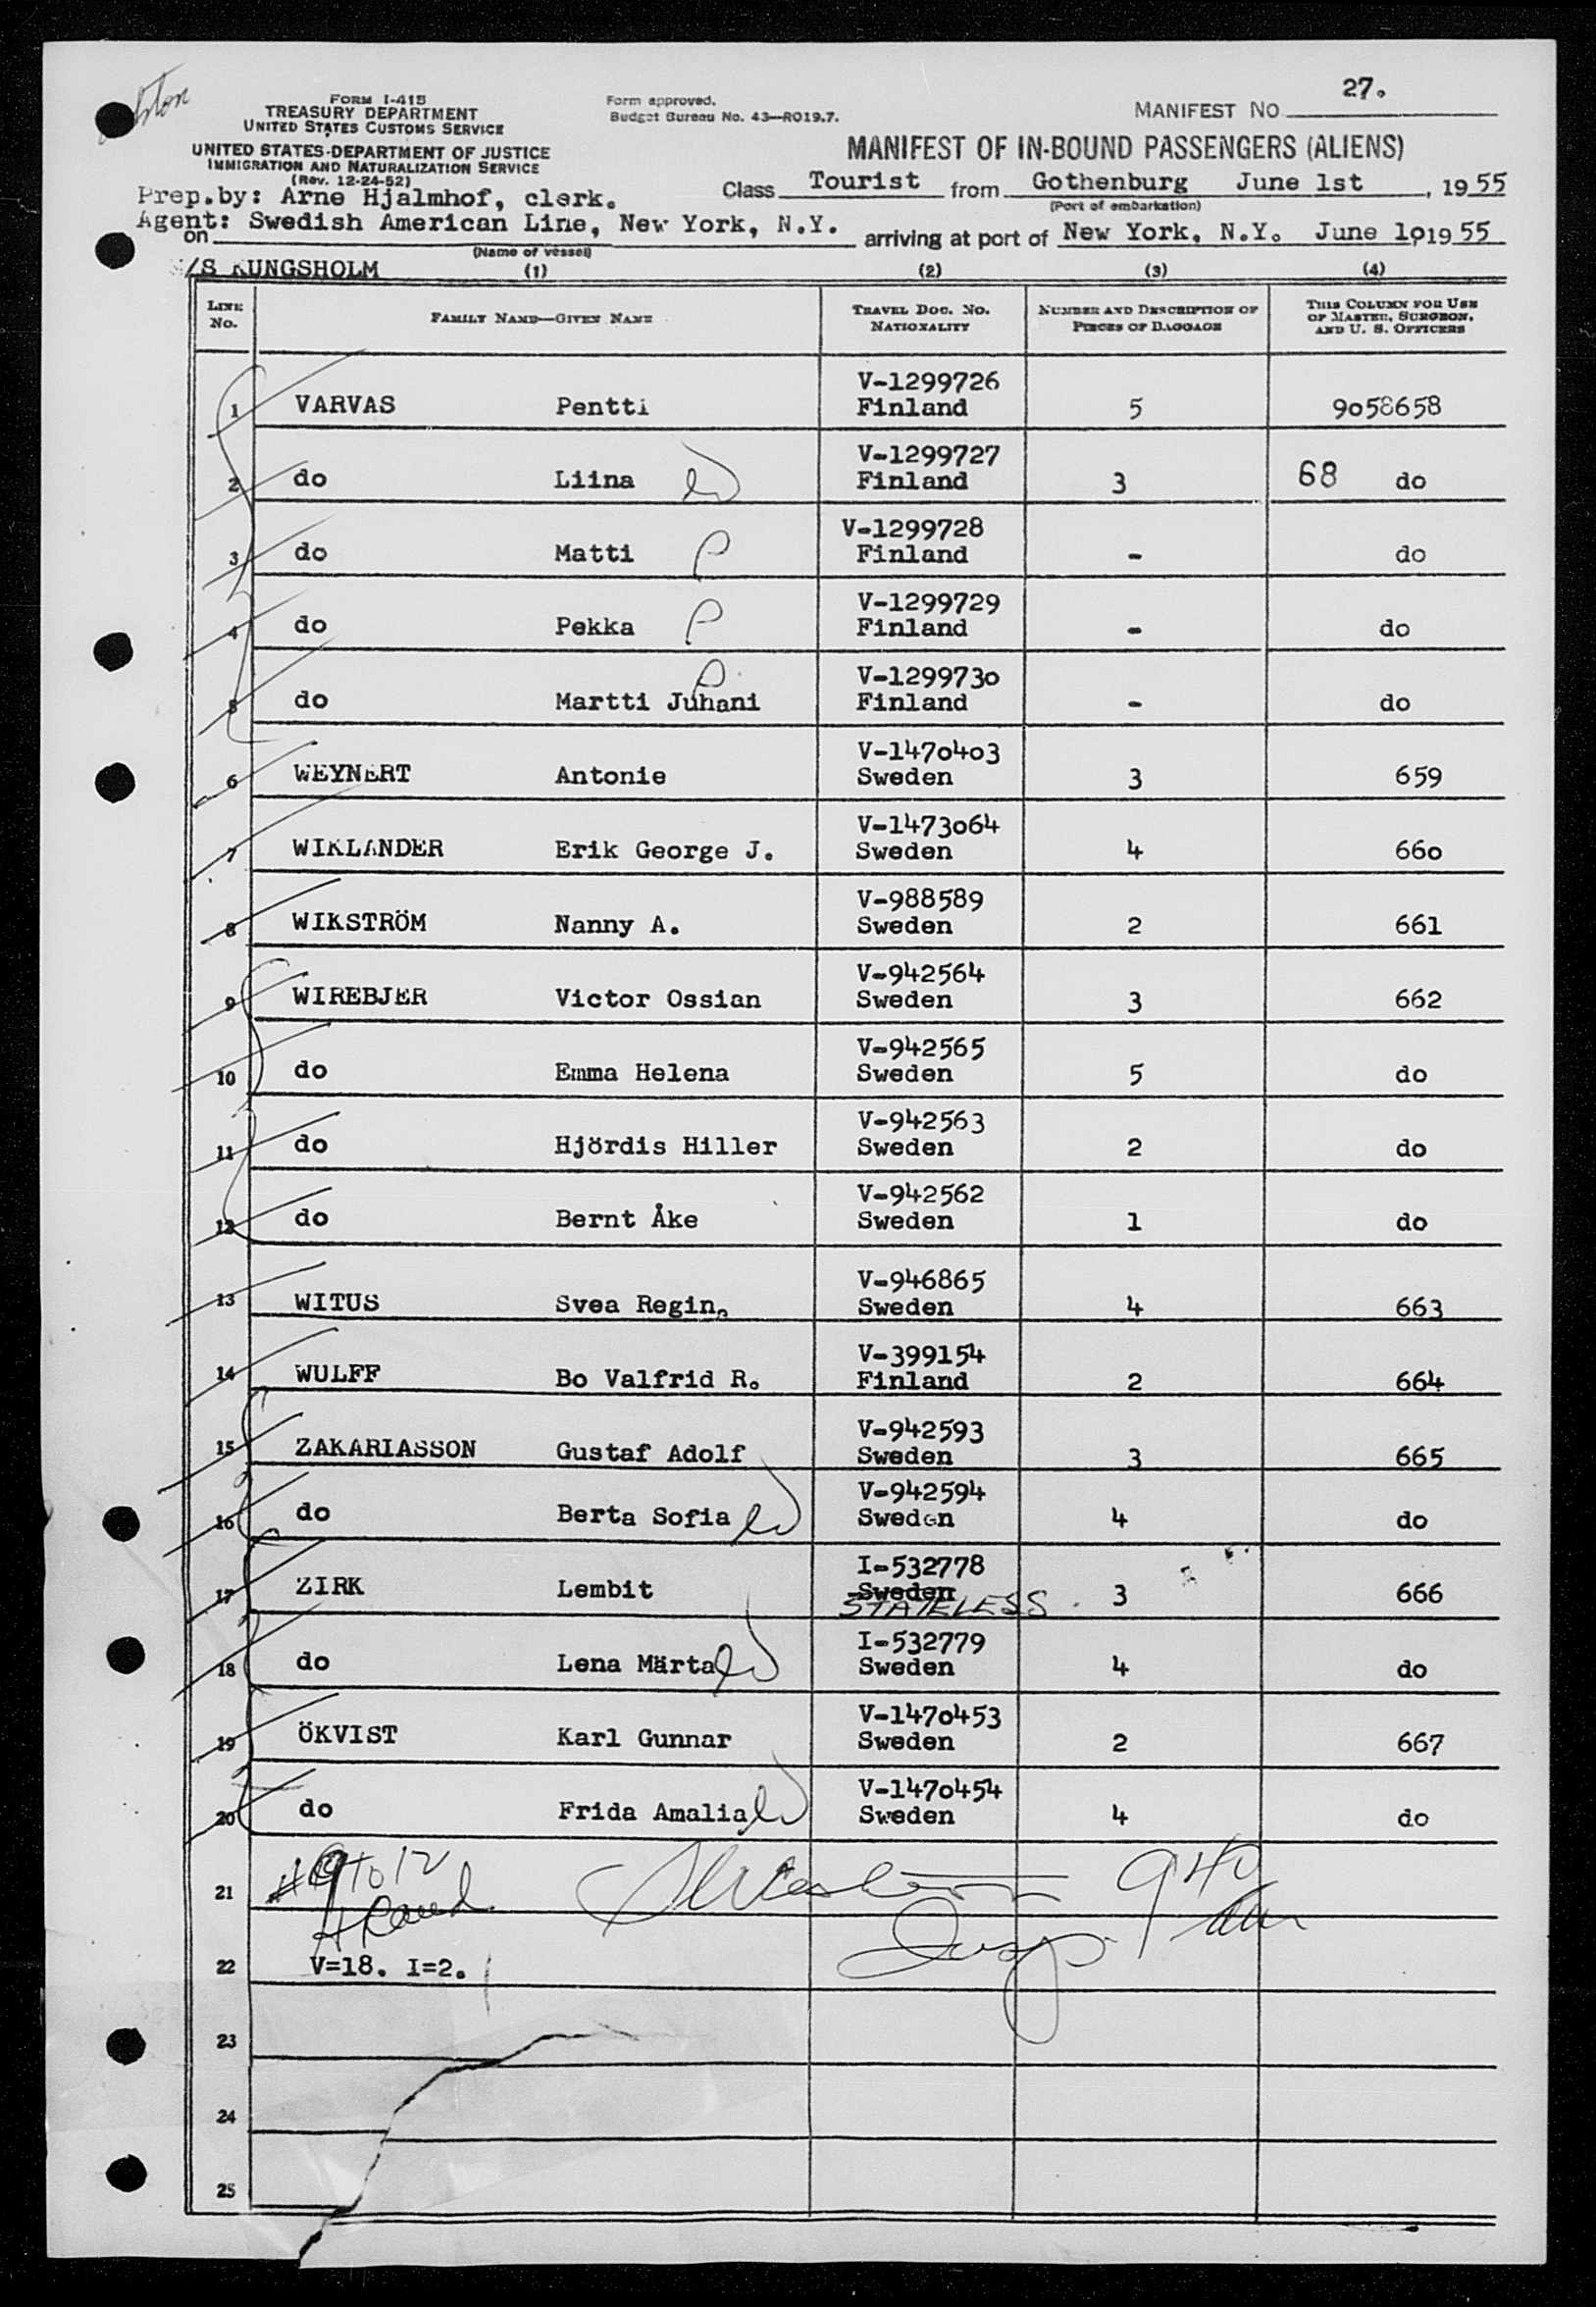 27.
FORM I-415
TREASURY DEPARTMENT
UNITED STATES CUSTOMS SERVICE
Form approved.
Budget Bureau No. 43—RO19.7.
MANIFEST NO
UNITED STATES DEPARTMENT OF JUSTICE
IMMIGRATION AND NATURALIZATION SERVICE
(Rev. 12-24-52)
MANIFEST OF IN-BOUND PASSENGERS (ALIENS)
Prep.by: Arne Hjalmhof, clerk.
Class Tourist from Gothenburg June 1st, 1955
(Port of embarkation)
Agent: Swedish American Line, New York, N.Y.
on arriving at port of New York, N.Y. June 10 1955
(Name of vessel)
/S KUNGSHOLM (1) (2) (3) (4)
LINE No. FAMILY NAME—GIVEN NAME TRAVEL DOC. NO. NATIONALITY NUMBER AND DESCRIPTION OF PIECES OF BAGGAGE THIS COLUMN FOR USE OF MASTER, SURGEON, AND U. S. OFFICERS
V-1299726
1 VARVAS Pentti Finland 5 9058658
V-1299727
2 do Liina Finland 3 68 do
V-1299728
3 do Matti Finland - do
V-1299729
4 do Pekka Finland - do
V-1299730
5 do Martti Juhani Finland - do
V-1470403
6 WEYNERT Antonie Sweden 3 659
V-1473064
7 WIKLANDER Erik George J. Sweden 4 660
V-988589
8 WIKSTRÖM Nanny A. Sweden 2 661
V-942564
9 WIREBJER Victor Ossian Sweden 3 662
V-942565
10 do Emma Helena Sweden 5 do
V-942563
11 do Hjördis Hiller Sweden 2 do
V-942562
12 do Bernt Åke Sweden 1 do
V-946865
13 WITUS Svea Regina Sweden 4 663
V-399154
14 WULFF Bo Valfrid R. Finland 2 664
V-942593
15 ZAKARIASSON Gustaf Adolf Sweden 3 665
V-942594
16 do Berta Sofia Sweden 4 do
I-532778
17 ZIRK Lembit Sweden 3 666
STATELESS
I-532779
18 do Lena Märta Sweden 4 do
V-1470453
19 ÖKVIST Karl Gunnar Sweden 2 667
V-1470454
20 do Frida Amalia Sweden 4 do
21
22 V=18. I=2.
23
24
25